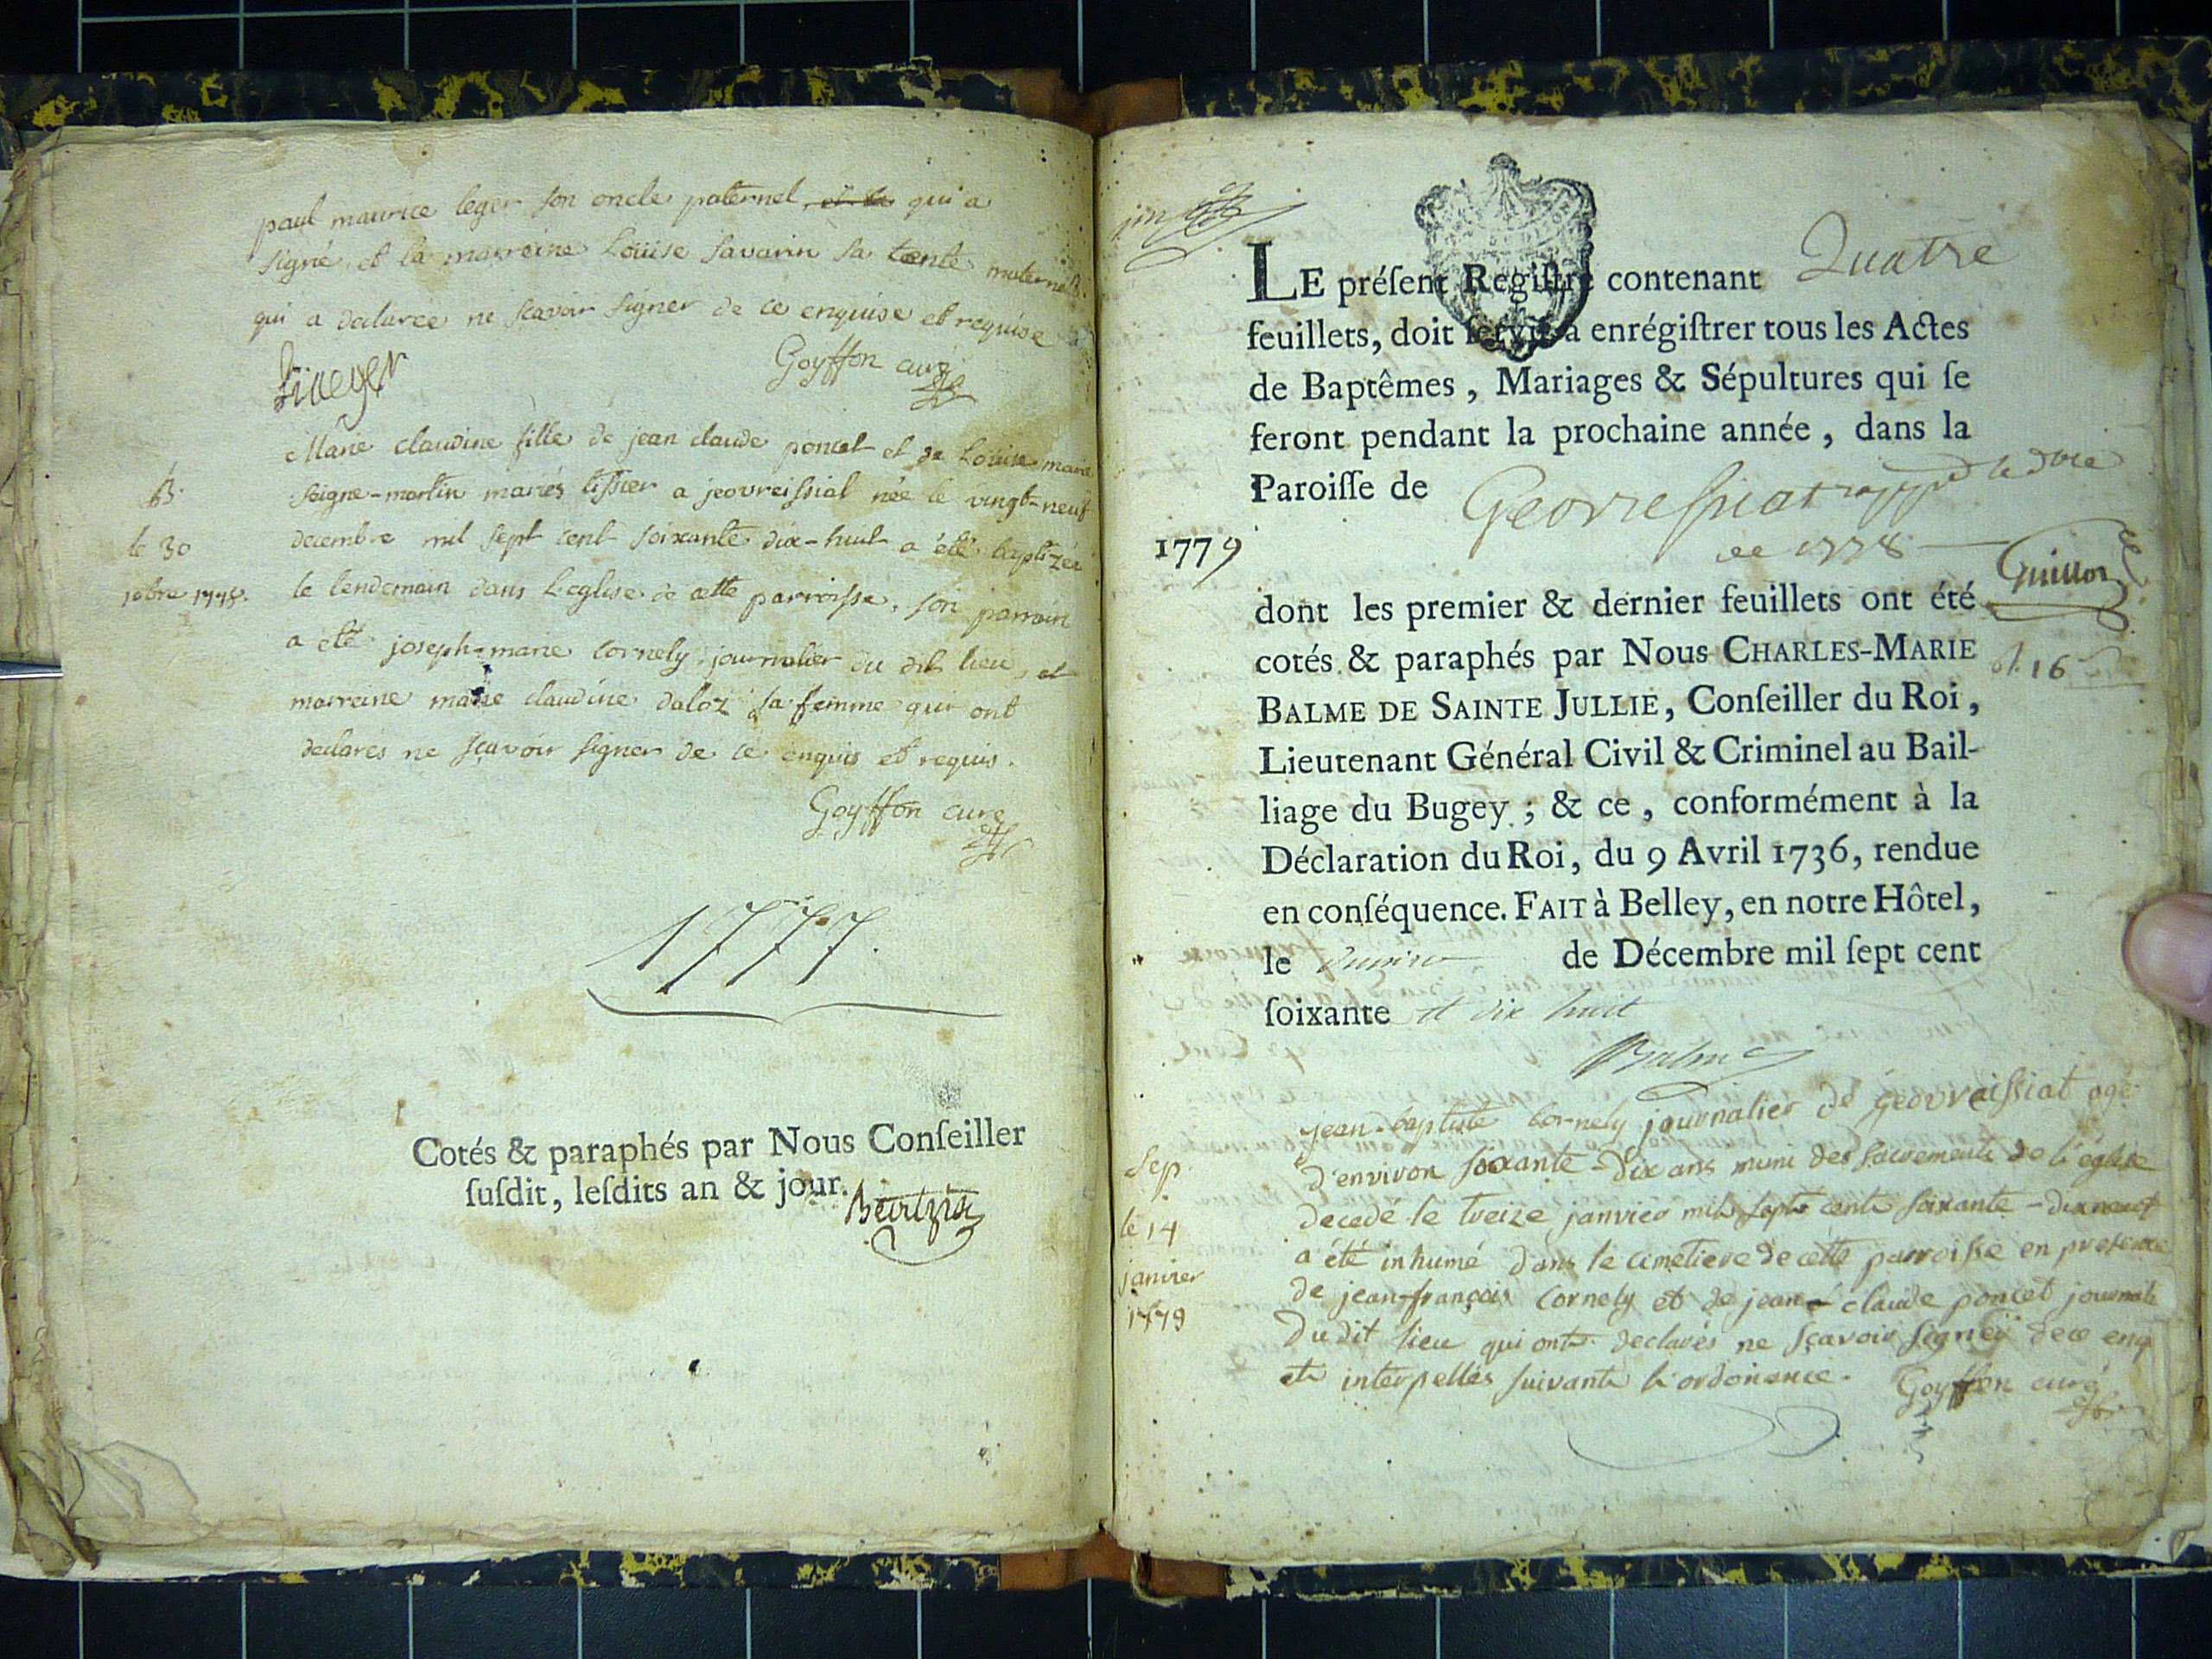 paul maurice leger son oncle paternel, et la qui a
signé, et la marreine Loüise Savarin sa tante maternelle
qui a declarée ne scavoir signer de ce enquise et requise
Goyffon curé
B.
le 30
xbre 1778.
Marie claudine fille de jean claude poncet et de Loüise marie
Seigne-martin mariés tissier a jeovreissiat née le vingt-neuf
decembre mil sept cent soixante dix-huit a été baptizée
le lendemain dans L'eglise de cette parroisse, son parrain
a été joseph-marie Cornely journalier du dit lieu, et
marreine marie claudine daloz sa femme qui ont
declarés ne sçavoir signer de ce enquis et requis.
Goyffon curé
1777.
Cotés & paraphés par Nous Conſeiller
ſuſdit, leſdits an & jour.
LE préſent Regiſtre contenant Quatre
feuillets, doit ſervir à enrégiſtrer tous les Actes
de Baptêmes, Mariages & Sépultures qui ſe
feront pendant la prochaine année, dans la
Paroiſſe de Georressiat
1779
de 1778
Guillot
16
dont les premier & dernier feuillets ont été
cotés & paraphés par Nous CHARLES-MARIE
BALME DE SAINTE JULLIE, Conſeiller du Roi,
Lieutenant Général Civil & Criminel au Bail-
liage du Bugey ; & ce, conformément à la
Déclaration du Roi, du 9 Avril 1736, rendue
en conſéquence. FAIT à Belley, en notre Hôtel,
le premier de Décembre mil ſept cent
ſoixante et dix huit
Balme
Sep.
le 14
janvier
1779
jean-baptiste Cornely journalier de geovreissiat agé
d'environ soixante-dix ans muni des sacrements de l'église
decedé le treize janvier mil sept cent soixante-dix neuf
a été inhumé dans le cimetiere de cette parroisse en presence
de jean-françois Cornely et de jean claude poncet journali
du dit lieu qui ont declarés ne sçavoir signer de ce enq
et interpellés suivant l'ordonance. Goyffon curé